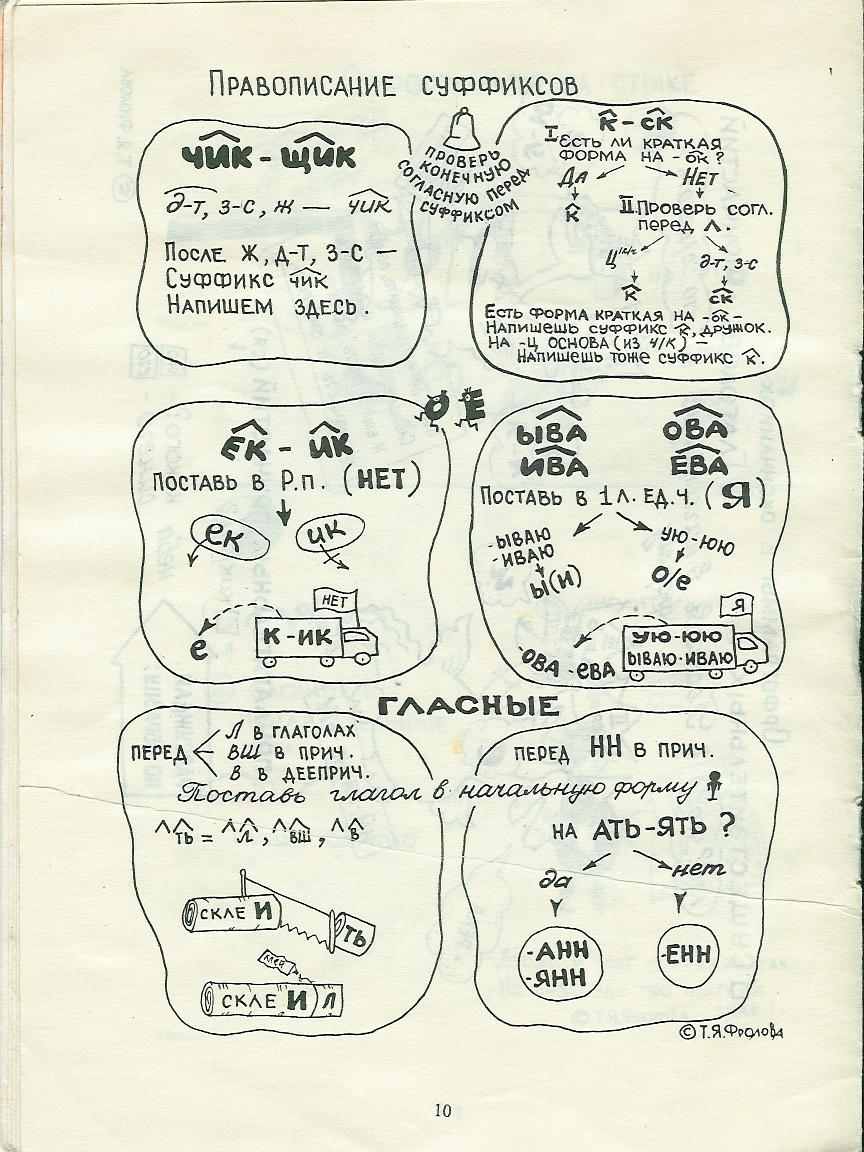 ПРАВОПИСАНИЕ СУФФИКСОВ
ЧИК - ЩИК
д-т, з-с, ж — чик
ПОСЛЕ Ж, Д-Т, З-С —
СУФФИКС ЧИК
НАПИШЕМ ЗДЕСЬ.
ПРОВЕРЬ
КОНЕЧНУЮ
СОГЛАСНУЮ ПЕРЕД
СУФФИКСОМ
К - СК
I ЕСТЬ ЛИ КРАТКАЯ
ФОРМА НА - ОК ?
ДА НЕТ
К II. ПРОВЕРЬ СОГЛ.
ПЕРЕД Л.
Ц ч/к/ц д-т, з-с
К СК
ЕСТЬ ФОРМА КРАТКАЯ НА -ОК-
НАПИШЕШЬ СУФФИКС К, ДРУЖОК.
НА -Ц ОСНОВА (ИЗ Ч/К) —
НАПИШЕШЬ ТОЖЕ СУФФИКС К.
О Е
ЕК - ИК
ПОСТАВЬ В Р.П. (НЕТ)
ек ик
НЕТ
е К-ИК
ЫВА ОВА
ИВА ЕВА
ПОСТАВЬ В 1 Л. ЕД.Ч. (Я)
-ЫВАЮ УЮ-ЮЮ
-ИВАЮ
Ы(И) О/е
Я
УЮ-ЮЮ
-ОВА -еВА ЫВАЮ-ИВАЮ
ГЛАСНЫЕ
Л В ГЛАГОЛАХ
ПЕРЕД ВШ В ПРИЧ.
В В ДЕЕПРИЧ.
ПЕРЕД НН В ПРИЧ.
Поставь глагол в начальную форму
ТЬ = Л, ВШ, В
СКЛЕ И ТЬ
СКЛЕ И Л
НА АТЬ-ЯТЬ ?
да нет
-АНН -ЕНН
-ЯНН
© Т.Я.Фролова
10